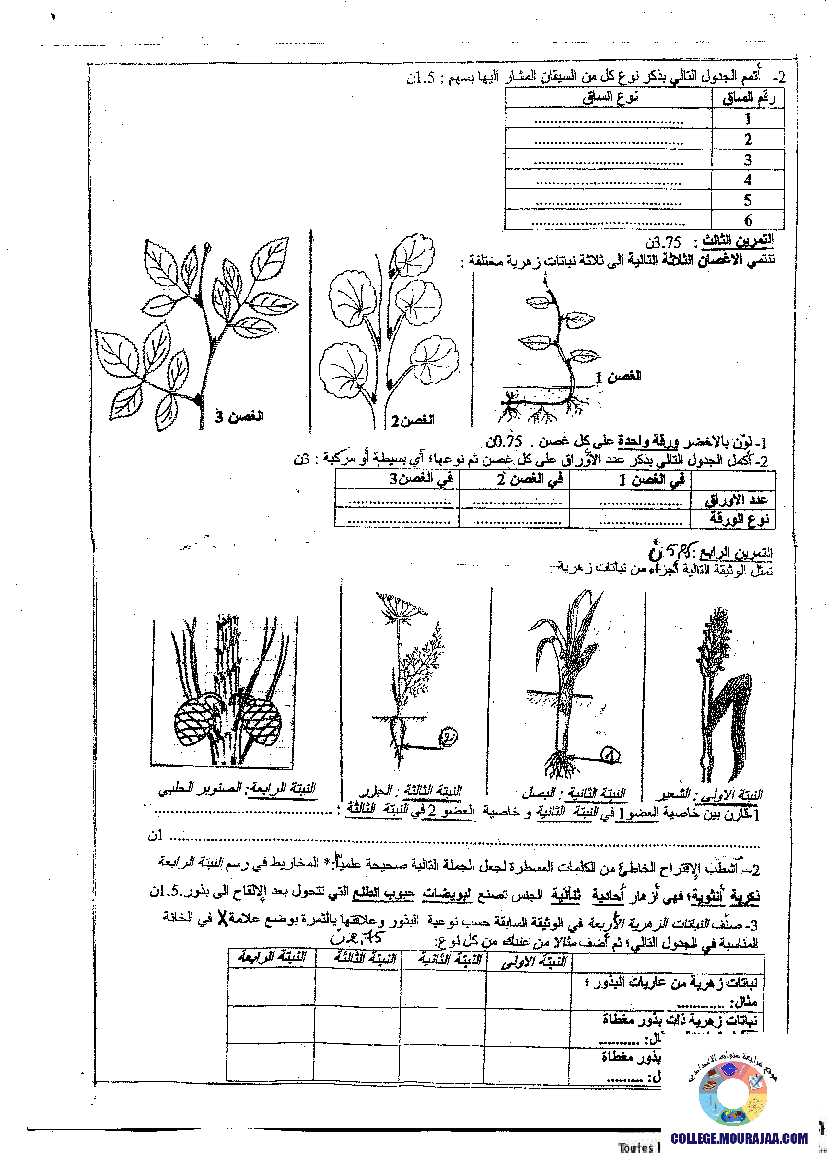 2- أتمم الجدول التالي بذكر نوع كل من السيقان المشار اليها بسهم : 1.5ن
رقم الساق نوع الساق
1 ........................................
2 ........................................
3 ........................................
4 ........................................
5 ........................................
6 ........................................
التمرين الثالث : 3.75ن
تنتمي الاغصان الثلاثة التالية الى ثلاثة نباتات زهرية مختلفة :
الغصن 1
الغصن2
الغصن 3
1- لون بالاخضر ورقة واحدة على كل غصن . 0.75ن
2- أكمل الجدول التالي بذكر عدد الأوراق على كل غصن ثم نوعها؛ أي بسيطة أو مركبة : 3ن
في الغصن 1 في الغصن 2 في الغصن3
عدد الاوراق ........................ ........................ ........................
نوع الورقة ........................ ........................ ........................
التمرين الرابع :
تمثل الوثيقة التالية أجزاء من نباتات زهرية:
1
2
النبتة الاولى : الشعير
النبتة الثانية : البصل
النبتة الثالثة : الجزر
النبتة الرابعة: الصنوبر الحلبي
1-قارن بين خاصية العضو1 في النبتة الثانية و خاصية العضو 2 في النبتة الثالثة : ........................................
........................................ 1ن
2- أشطب الإقتراح الخاطئ من الكلمات المسطرة لجعل الجملة التالية صحيحة علميا:* المخاريط في رسم النبتة الرابعة
ذكرية أنثوية؛ فهي أزهار أحادية ثنائية الجنس تصنع لبويضات حبوب الطلع التي تتحول بعد الإلقاح الى بذور.1.5ن
3- صنف النباتات الزهرية الأربعة في الوثيقة السابقة حسب نوعية البذور وعلاقتها بالثمرة بوضع علامة X في الخانة
المناسبة في الجدول التالي؛ ثم أضف مثالا من عندك من كل نوع:
النبتة الاولى النبتة الثانية النبتة الثالثة النبتة الرابعة
نباتات زهرية من عاريات البذور ؛
مثال: ............
نباتات زهرية ذات بذور مغطاة
ال: ..........
بذور مغطاة
ل: .........
موقع مراجعة
COLLEGE.MOURAJAA.COM
Toutes